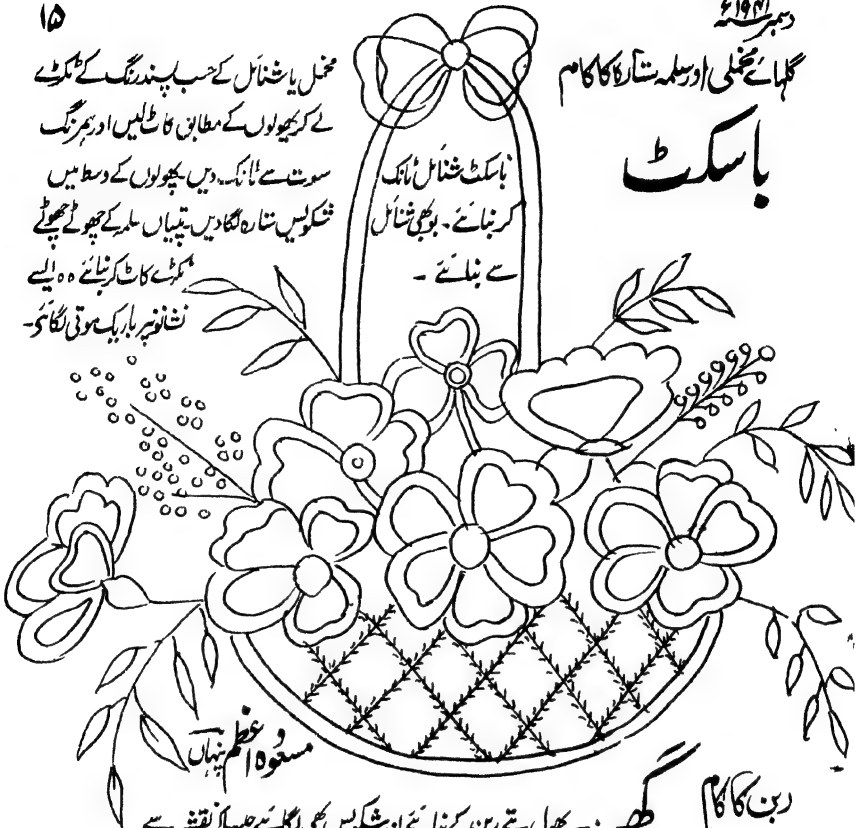 دسمبر سنہ ۱۹۴۱ء
۱۵
گلہائے مخملی اور سلمہ ستارہ کا کام
باسکٹ
باسکٹ شنائل ٹانک
کر بنائے۔ بو بھی شنائل
سے بنائے۔
مخمل یا شنائل کے حسب پسند رنگ کے ٹکڑے
لے کر پھولوں کے مطابق کاٹ لیں اور ہمرنگ
سوت سے ٹانک دیں۔ پھولوں کے وسط میں
ستارہ لگا دیں۔ پتیاں سلمہ کے چھوٹے چھوٹے
ٹکڑے کاٹ کر بنائے ٥٥ ایسے
نشانوں پر باریک موتی لگائے۔
مسعودہ اعظم پنہاں
ربن کا کام